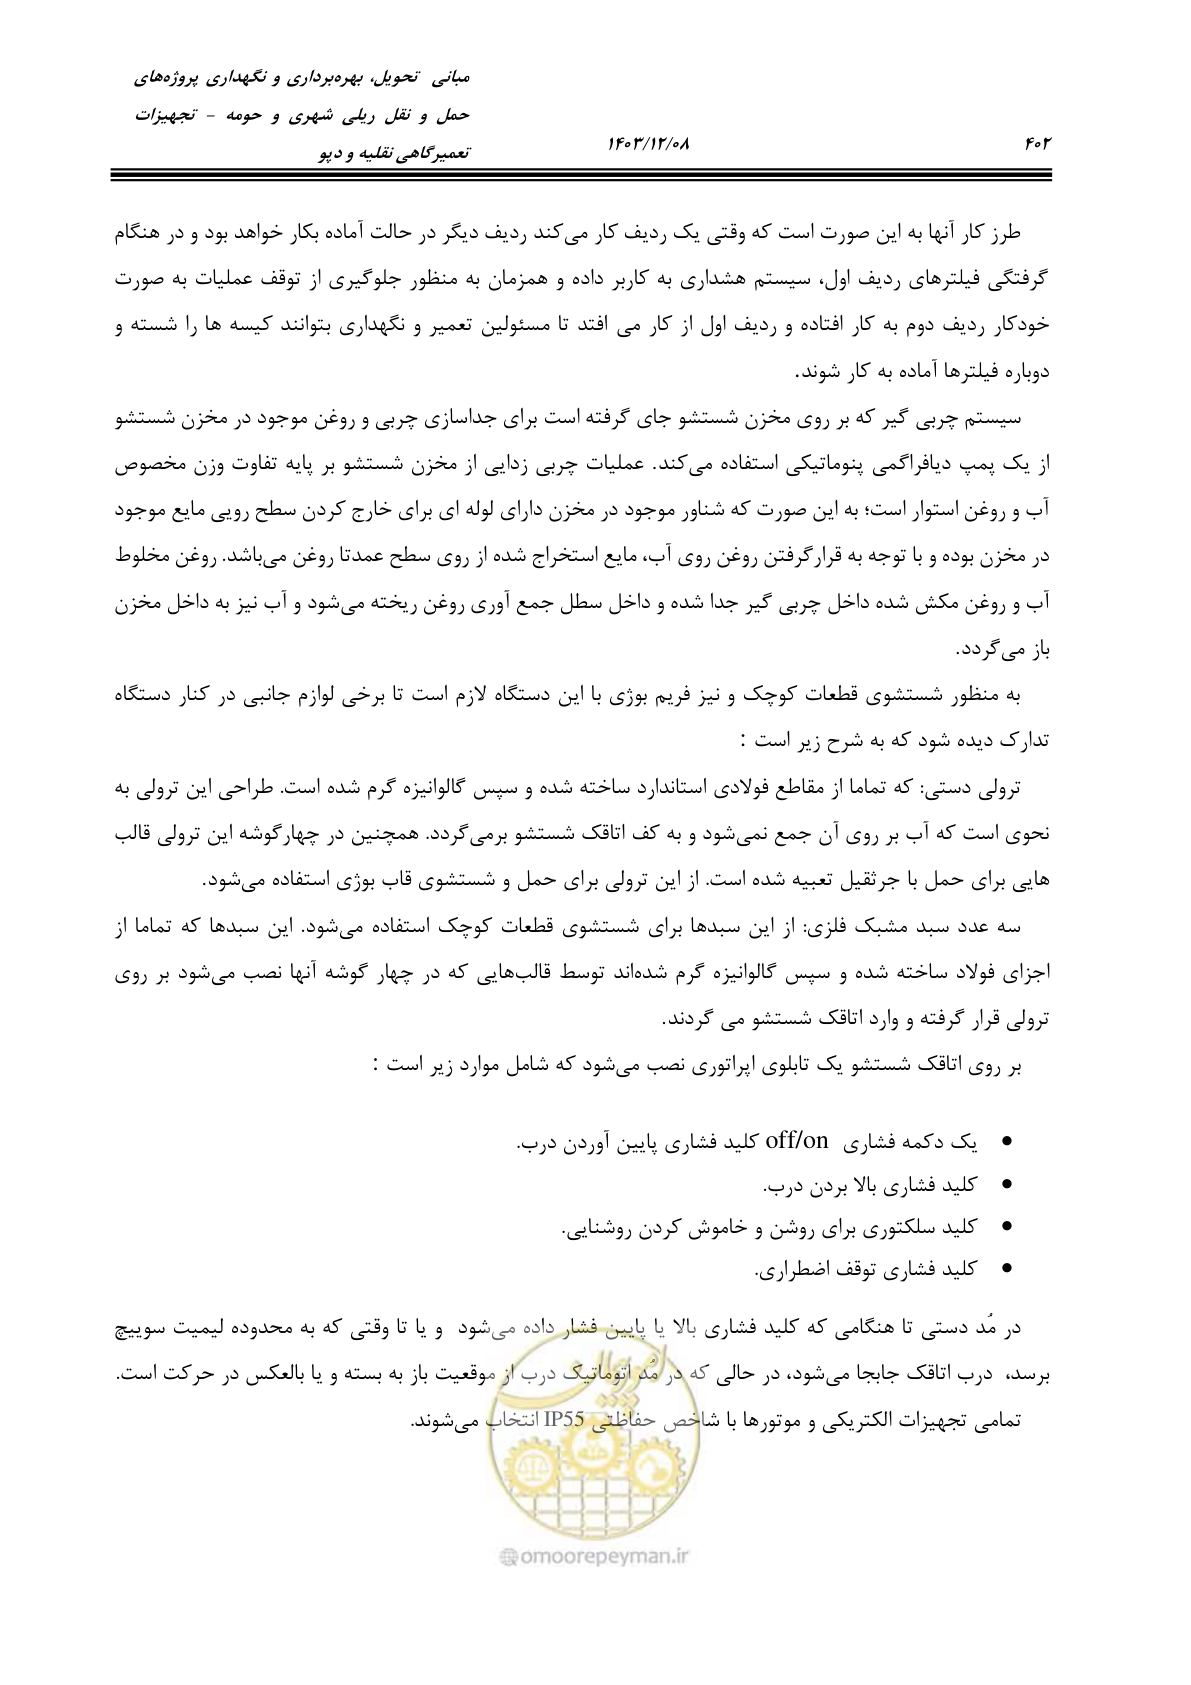 مبانی تحویل، بهره‌برداری و نگهداری پروژه‌های
حمل و نقل ریلی شهری و حومه - تجهیزات
تعمیرگاهی نقلیه و دپو
۱۴۰۳/۱۲/۰۸
۴۰۲
طرز کار آنها به این صورت است که وقتی یک ردیف کار می‌کند ردیف دیگر در حالت آماده بکار خواهد بود و در هنگام
گرفتگی فیلترهای ردیف اول، سیستم هشداری به کاربر داده و همزمان به منظور جلوگیری از توقف عملیات به صورت
خودکار ردیف دوم به کار افتاده و ردیف اول از کار می افتد تا مسئولین تعمیر و نگهداری بتوانند کیسه ها را شسته و
دوباره فیلترها آماده به کار شوند.
سیستم چربی گیر که بر روی مخزن شستشو جای گرفته است برای جداسازی چربی و روغن موجود در مخزن شستشو
از یک پمپ دیافراگمی پنوماتیکی استفاده می‌کند. عملیات چربی زدایی از مخزن شستشو بر پایه تفاوت وزن مخصوص
آب و روغن استوار است؛ به این صورت که شناور موجود در مخزن دارای لوله ای برای خارج کردن سطح رویی مایع موجود
در مخزن بوده و با توجه به قرارگرفتن روغن روی آب، مایع استخراج شده از روی سطح عمدتا روغن می‌باشد. روغن مخلوط
آب و روغن مکش شده داخل چربی گیر جدا شده و داخل سطل جمع آوری روغن ریخته می‌شود و آب نیز به داخل مخزن
باز می‌گردد.
به منظور شستشوی قطعات کوچک و نیز فریم بوژی با این دستگاه لازم است تا برخی لوازم جانبی در کنار دستگاه
تدارک دیده شود که به شرح زیر است :
ترولی دستی: که تماما از مقاطع فولادی استاندارد ساخته شده و سپس گالوانیزه گرم شده است. طراحی این ترولی به
نحوی است که آب بر روی آن جمع نمی‌شود و به کف اتاقک شستشو برمی‌گردد. همچنین در چهارگوشه این ترولی قالب
هایی برای حمل با جرثقیل تعبیه شده است. از این ترولی برای حمل و شستشوی قاب بوژی استفاده می‌شود.
سه عدد سبد مشبک فلزی: از این سبدها برای شستشوی قطعات کوچک استفاده می‌شود. این سبدها که تماما از
اجزای فولاد ساخته شده و سپس گالوانیزه گرم شده‌اند توسط قالب‌هایی که در چهار گوشه آنها نصب می‌شود بر روی
ترولی قرار گرفته و وارد اتاقک شستشو می گردند.
بر روی اتاقک شستشو یک تابلوی اپراتوری نصب می‌شود که شامل موارد زیر است :
• یک دکمه فشاری off/on کلید فشاری پایین آوردن درب.
• کلید فشاری بالا بردن درب.
• کلید سلکتوری برای روشن و خاموش کردن روشنایی.
• کلید فشاری توقف اضطراری.
در مُد دستی تا هنگامی که کلید فشاری بالا یا پایین فشار داده می‌شود و یا تا وقتی که به محدوده لیمیت سوییچ
برسد، درب اتاقک جابجا می‌شود، در حالی که در مُد اتوماتیک درب از موقعیت باز به بسته و یا بالعکس در حرکت است.
تمامی تجهیزات الکتریکی و موتورها با شاخص حفاظتی IP55 انتخاب می‌شوند.
امور پیمان
@omoorepeyman.ir